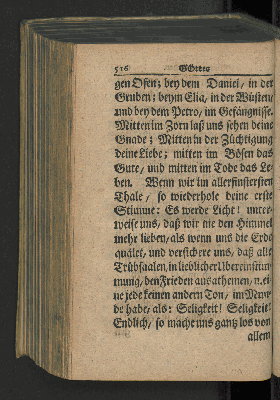 516 Göttli
gen Ofen; bey dem Daniel, in der
Gruben; beym Elia, in der Wüsten/
und bey dem Petro, im Gefängnisse.
Mitten im Zorn laß uns sehen deine
Gnade; Mitten in der Züchtigung
deine Liebe; mitten im Bösen das
Gute, und mitten im Tode das Le-
ben. Wenn wir im allerfinstersten
Thale, so wiederhole deine erste
Stimme: Es werde Licht! unter-
weise uns, daß wir nie den Himmel
mehr lieben, als wenn uns die Erde
quälet, und versichere uns, daß alle
Trübsaalen, in lieblicher Übereinstim-
mung, den Frieden aus athemen, u. ei-
ne jede keinen andern Ton, im Mun-
de habe, als: Seligkeit! Seligkeit!
Endlich, so mache uns gantz los von
allem